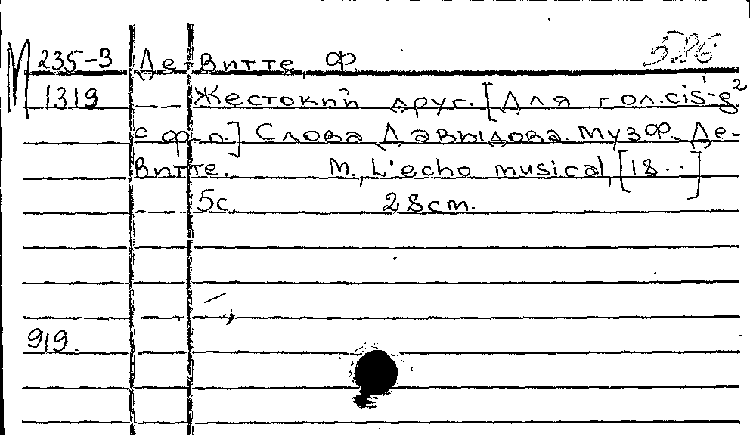 М 235-3 Де-Витте, Ф. 586
1319 Жестокий друг. [Для гол. cis¹-g²
с ф-п.] Слова Давыдова. Муз. Ф. Де-
Витте. М., L'echo musical, [18..]
5с. 28cm.
919.